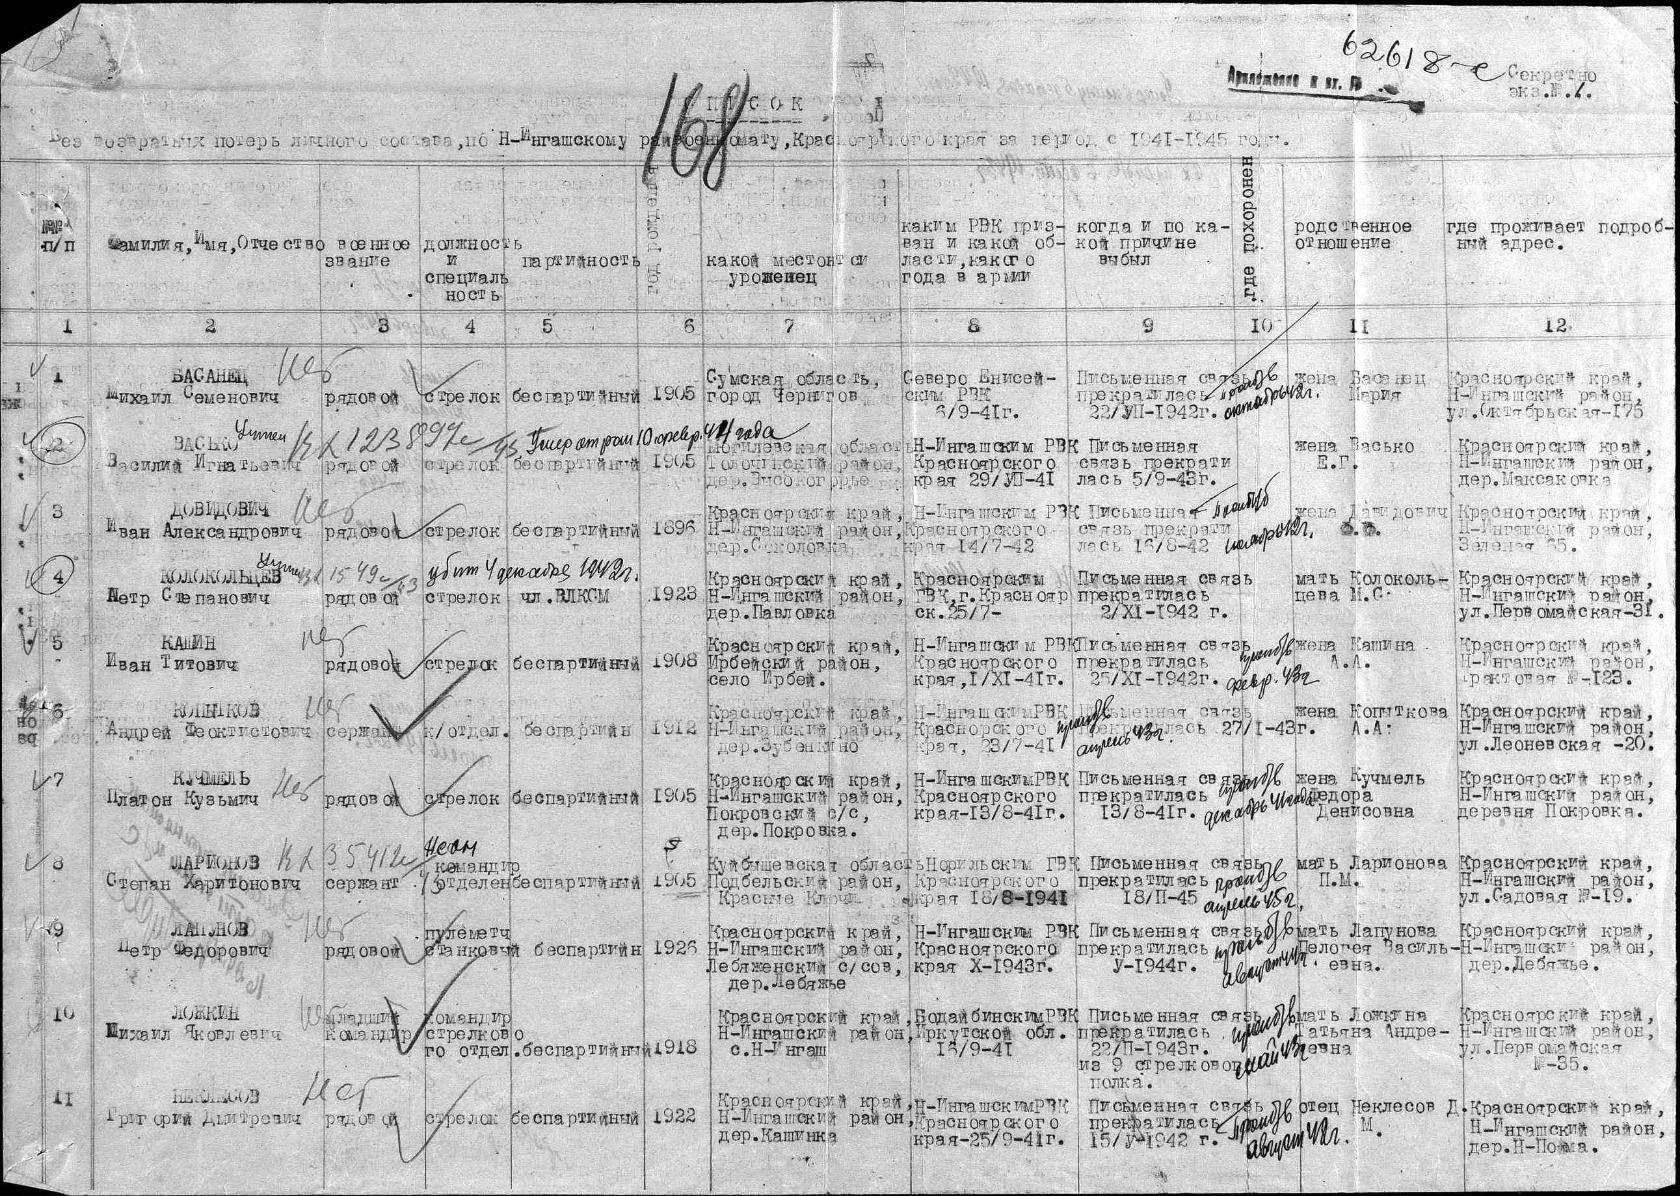 62618-с
Приложение к вх. №
Секретно
экз.№.1.
168
СПИСОК
Без возвратных потерь личного состава, по Н-Ингашскому райвоенкомату, Красноярского края за период с 1941-1945 годы.
№№ п/п
Фамилия, Имя, Отчество
военное звание
должность и специаль ность
партийность
год рождения
какой местонсти уроженец
каким РВК приз-ван и какой об-ласти, какого года в армии
когда и по ка-кой причине выбыл
где похоронен
родственное отношение
где проживает подроб-ный адрес.
1 2 3 4 5 6 7 8 9 10 11 12
1
БАСАНЕЦ Нет
Михаил Семенович рядовой стрелок беспартийный 1905
Сумская область,
город Чернигов
Северо Енисей-
ским РВК
6/9-41г.
Письменная связь
прекратилась
22/УП-1942г.
октябрь 42г.
жена Басанец
Мария
Красноярский край,
Н-Ингашский район,
ул.Октябрьская-175
2
ВАСЬКО Учтен
Умер от ран 10 февр. 44 года
Василий Игнатьевич рядовой стрелок беспартийный 1905
Могилевская область
Толочинский район,
дер.Высокогорье
Н-Ингашским РВК
Красноярского
края 29/УП-41
Письменная
связь прекрати
лась 5/9-43г.
жена Васько
Е.Г.
Красноярский край,
Н-Ингашский район,
дер.Максаковка
3
ДОВИДОВИЧ Нет
Иван Александрович рядовой стрелок беспартийный 1896
Красноярский край,
Н-Ингашский район,
дер.Соколовка
Н-Ингашским РВК
Красноярского
края 14/7-42
Письменная
связь прекрати
лась 16/8-42
ноябрь 42г.
жена Давидович
Красноярский край,
Н-Ингашский район,
Зеленая 65.
4
КОЛОКОЛЬЦЕВ Учтен
убит 4 декабря 1942г.
Петр Степанович рядовой стрелок чл.ВЛКСМ 1923
Красноярский край,
Н-Ингашский район,
дер.Павловка
Красноярским
ГВК,г.Краснояр
ск.25/7-
Письменная связь
прекратилась
2/XI-1942 г.
мать Колоколь-
цева М.С.
Красноярский край,
Н-Ингашский район,
ул.Первомайская-31.
5
КАШИН нет
Иван Титович рядовой стрелок беспартийный 1908
Красноярский край,
Ирбейский район,
село Ирбей.
Н-Ингашским РВК
Красноярского
края,1/XI-41г.
Письменная связь
прекратилась
25/XI-1942г.
февр. 43г
жена Кашина
А.А.
Красноярский край,
Н-Ингашский район,
трактовая №-123.
6
КОПЫТКОВ Нет
Андрей Феоктистович сержант к/отдел. беспартийн 1912
Красноярский край,
Н-Ингашский район,
дер.Зубенкино
Н-ИнгашскимРВК
Красноярского
края, 23/7-41
Письменная связь
прекратилась 27/1-43г.
апрель 43г.
жена Копыткова
А.А:
Красноярский край,
Н-Ингашский район,
ул.Леоневская -20.
7
КУЧМЕЛЬ Нет
Платон Кузьмич рядовой стрелок беспартийный 1905
Красноярский край,
Н-Ингашский район,
Покровский с/с,
дер.Покровка.
Н-ИнгашскимРВК
Красноярского
края-13/8-41г.
Письменная связь
прекратилась
13/8-41г.
декабрь 41 года
жена Кучмель
Федора
Денисовна
Красноярский край,
Н-Ингашский район,
деревня Покровка.
8
ЛАРИОНОВ
Степан Харитонович сержант командир отделен беспартийный 1905
Куйбышевская область
Подбельский район,
Красные Ключи
Норильским ГВК
Красноярского
края 18/8-1941
Письменная связь
прекратилась
18/П-45
апрель 45г.
мать Ларионова
П.М.
Красноярский край,
Н-Ингашский район,
ул.Садовая №-19.
9
ЛАПУНОВ Нет
Петр Федорович рядовой пулеметч станковый беспартийн 1926
Красноярский край,
Н-Ингашский район,
Лебяженский с/сов,
дер.Лебяжье
Н-Ингашским РВК
Красноярского
края X-1943г.
Письменная связь
прекратилась
У-1944г.
август 44г.
мать Лапунова
Пелогея Василь-
евна.
Красноярский край,
Н-Ингашский район,
дер.Лебяжье.
10
ЛОЖКИН
Михаил Яковлевич младший командир командир стрелково го отдел. беспартийный 1918
Красноярский край,
Н-Ингашский район,
с.Н-Ингаш
БодайбинскимРВК
Иркутской обл.
16/9-41
Письменная связь
прекратилась
22/П-1943г.
из 9 стрелкового
полка.
май 43г
мать Ложкина
Татьяна Андре-
евна
Красноярский край,
Н-Ингашский район,
ул.Первомайская
№-35.
11
НЕКЛЕСОВ Нет
Григорий Дмитревич рядовой стрелок беспартийный 1922
Красноярский край,
Н-Ингашский район,
дер.Кашинка
Н-ИнгашскимРВК
Красноярского
края-25/9-41г.
Письменная связь
прекратилась
15/У-1942 г.
август 42г.
отец Неклесов Д.
М.
Красноярский край,
Н-Ингашский район,
дер.Н-Пойма.